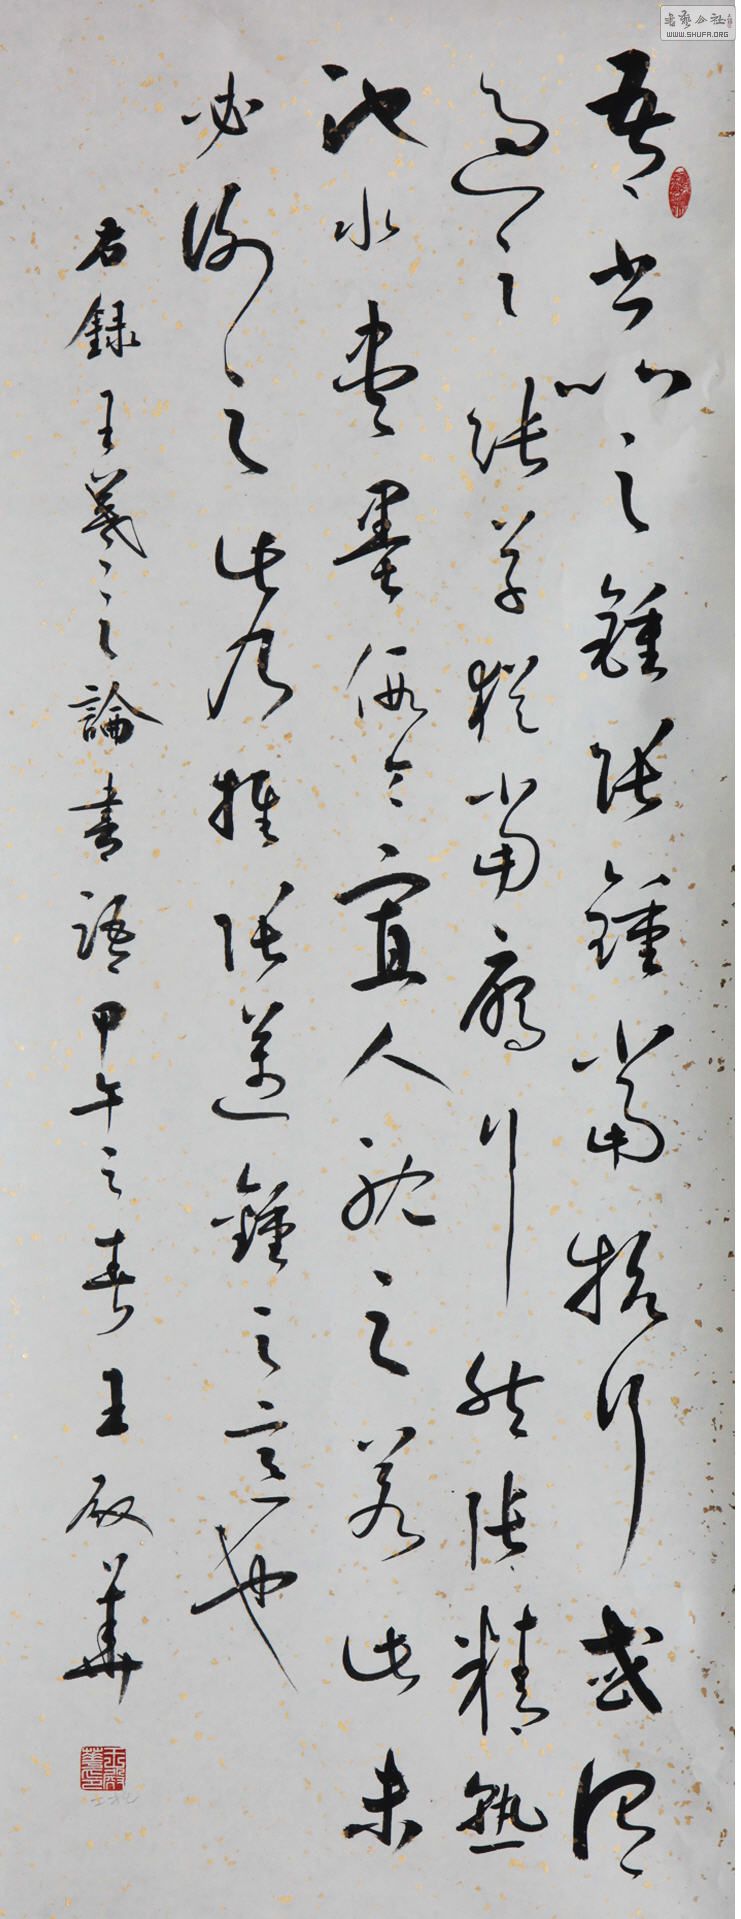 吾書比之鍾張鍾當抗行或謂
過之張草猶當雁行然張精熟
池水盡墨假令寡人耽之若此未
必謝之此乃推張邁鍾之意也
右錄王羲之論書語甲午之春王華
書藝公社
WWW.SHUFA.ORG